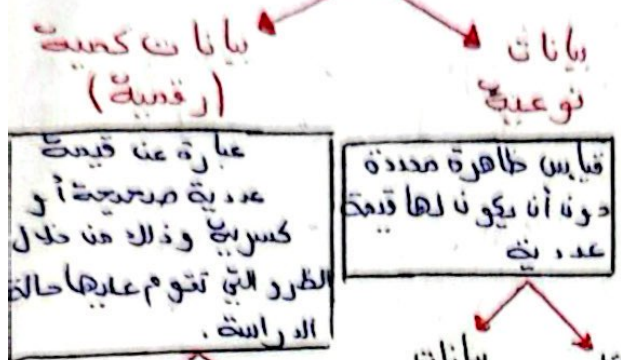 بيانات
نوعية
قياس ظاهرة محددة
دون أن يكون لها قيمة
عددية
بيانات كمية
(رقمية)
عبارة عن قيمة
عددية صحيحة أو
كسرية وذلك من خلال
الظرو التي تقوم عليها حالة
الدراسة.
بيانات